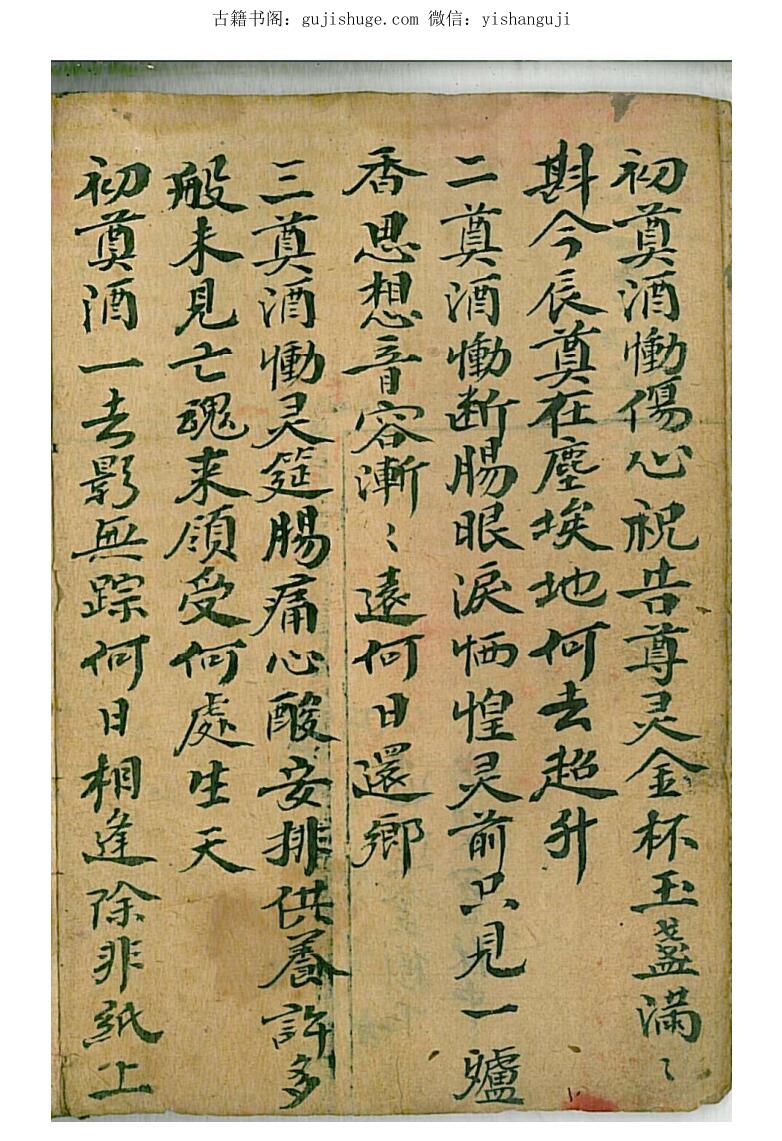 古籍书阁：gujishuge.com 微信：yishanguji
初奠酒慟傷心祝告尊灵金杯玉盞滿〻
斟今辰奠在塵埃地何去超升
二奠酒慟断腸眼淚恓惶灵前只見一爐
香思想音容漸〻遠何日還鄉
三奠酒慟灵筵腸痛心酸安排供養許多
般未見亡魂来領受何處生天
初奠酒一去影無踪何日相逢除非紙上